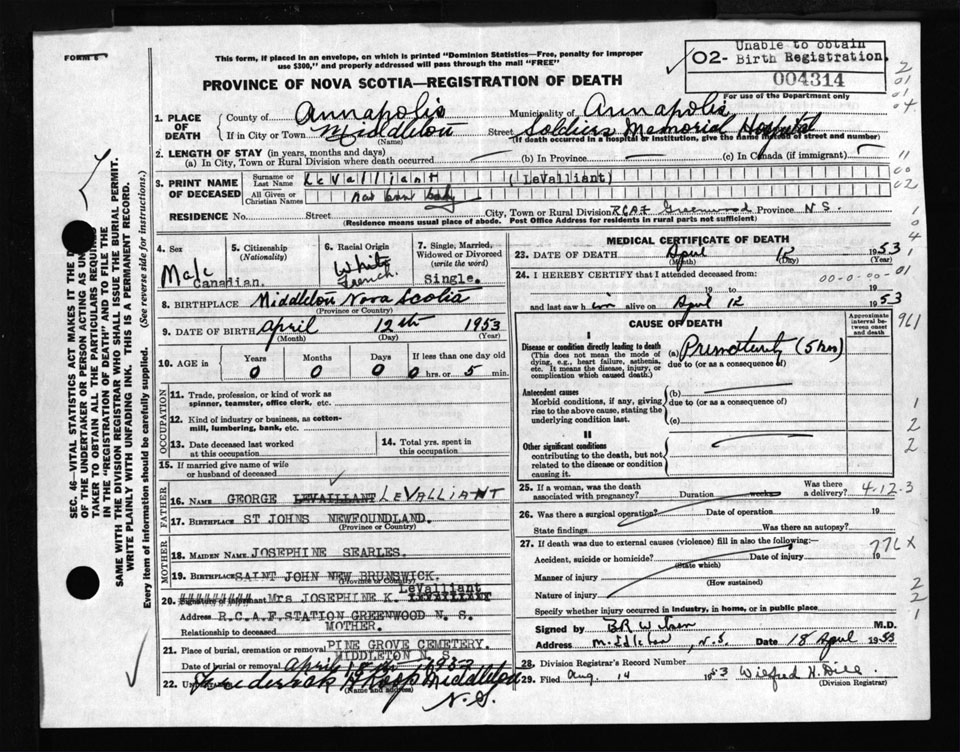 FORM 6
This form, if placed in an envelope, on which is printed "Dominion Statistics—Free, penalty for improper
use $300," and properly addressed will pass through the mail "FREE"
PROVINCE OF NOVA SCOTIA—REGISTRATION OF DEATH
02- Unable to obtain
Birth Registration.
004314
For use of the Department only
2
01
01
04
11
00
02
1. PLACE OF DEATH
County of Annapolis Municipality of Annapolis
If in City or Town Middleton Street Soldiers Memorial Hospital
(Name) (If death occurred in a hospital or institution, give the name instead of street and number)
2. LENGTH OF STAY (in years, months and days)
(a) In City, Town or Rural Division where death occurred (b) In Province (c) In Canada (if immigrant)
3. PRINT NAME OF DECEASED
Surname or Last Name LeValliant (LeValliant)
All Given or Christian Names Not born baby
RESIDENCE No. Street City, Town or Rural Division RCAF Greenwood Province N.S.
(Residence means usual place of abode. Post Office Address for residents in rural parts not sufficient)
4. Sex
Male
5. Citizenship
(Nationality)
Canadian.
6. Racial Origin
White
French.
7. Single, Married, Widowed or Divorced
(write the word)
Single.
8. BIRTHPLACE Middleton Nova Scotia
(Province or Country)
9. DATE OF BIRTH April 12th 1953
(Month) (Day) (Year)
10. AGE in Years Months Days If less than one day old
0 0 0 0 hrs. or 5 min.
OCCUPATION
11. Trade, profession, or kind of work as
spinner, teamster, office clerk, etc.
12. Kind of industry or business, as cotton-
mill, lumbering, bank, etc.
13. Date deceased last worked
at this occupation
14. Total yrs. spent in
this occupation
15. If married give name of wife
or husband of deceased
FATHER
16. NAME GEORGE LEVAILLANT LEVALLIANT
17. BIRTHPLACE ST JOHNS NEWFOUNDLAND.
(Province or Country)
MOTHER
18. MAIDEN NAME JOSEPHINE SEARLES.
19. BIRTHPLACE SAINT JOHN NEW BRUNSWICK.
(Province or Country)
LeValliant
20. Signature of informant Mrs JOSEPHINE K. LEVAILLANT
Address R.C.A.F.STATION GREENWOOD N. S.
Relationship to deceased MOTHER.
21. Place of burial, cremation or removal PINE GROVE CEMETERY.
MIDDLETON N.S.
Date of burial or removal April 1953
22. Middleton
(Name and address)
N.S.
MEDICAL CERTIFICATE OF DEATH
23. DATE OF DEATH April 1953
(Month) (Day) (Year)
24. I HEREBY CERTIFY that I attended deceased from:
00-0-00-01
19 to 19
and last saw him alive on April 12 1953
CAUSE OF DEATH
Approximate interval between onset and death
Disease or condition directly leading to death
(This does not mean the mode of dying, e.g., heart failure, asthenia, etc. It means the disease, injury, or complication which caused death.)
(a) Prematurity (5 hrs)
due to (or as a consequence of)
Antecedent causes
Morbid conditions, if any, giving rise to the above cause, stating the underlying condition last.
(b)
due to (or as a consequence of)
(c)
II
Other significant conditions
contributing to the death, but not related to the disease or condition causing it.
25. If a woman, was the death
associated with pregnancy? Duration weeks Was there a delivery? 4-12-3
26. Was there a surgical operation? Date of operation 19
State findings Was there an autopsy?
27. If death was due to external causes (violence) fill in also the following:— 776X
Accident, suicide or homicide? Date of injury 19
(State which)
Manner of injury
(How sustained)
Nature of injury
Specify whether injury occurred in industry, in home, or in public place
Signed by M.D.
Address Middleton, N.S. Date 18 April 1953
28. Division Registrar's Record Number
29. Filed Aug. 14 1953 Wilfred H. Dill.
(Division Registrar)
961
SEC. 46—VITAL STATISTICS ACT MAKES IT THE
OF THE UNDERTAKER OR PERSON ACTING AS
TAKER TO OBTAIN ALL THE PARTICULARS REQUIRED
IN THE "REGISTRATION OF DEATH" AND TO FILE THE
SAME WITH THE DIVISION REGISTRAR WHO SHALL ISSUE THE BURIAL PERMIT.
WRITE PLAINLY WITH UNFADING INK. THIS IS A PERMANENT RECORD.
Every item of information should be carefully supplied. (See reverse side for instructions.)